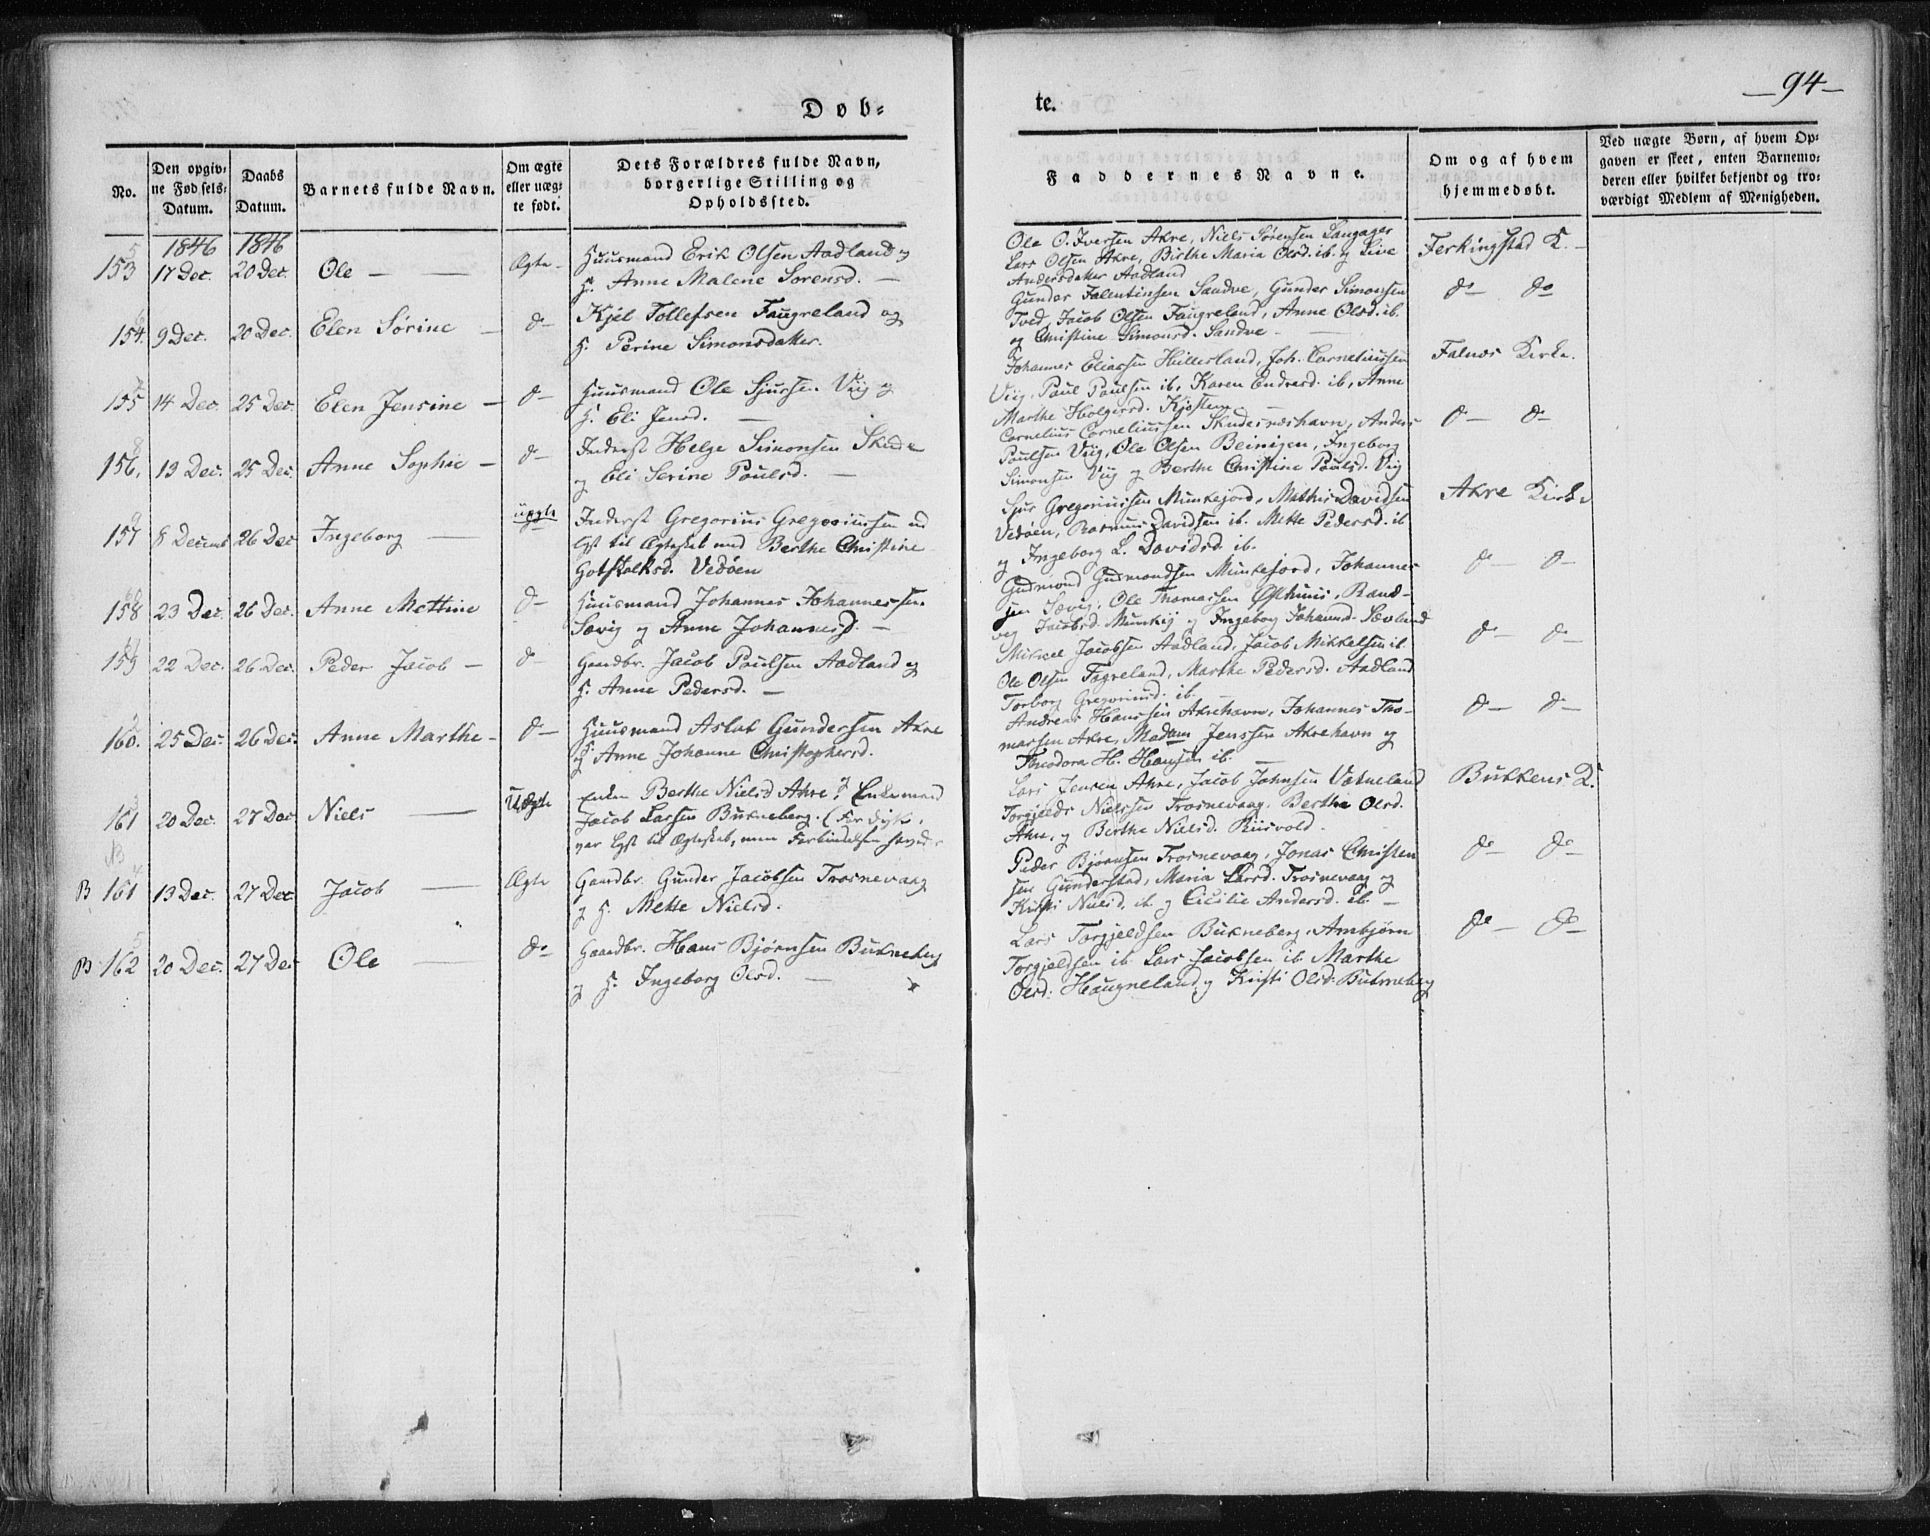 Døb=
te.
—94—
No.
Den opgiv=
ne Fødsels=
Datum.
Daabs
Datum.
Barnets fulde Navn.
Om ægte
eller uæg=
te født.
Dets Forældres fulde Navn,
borgerlige Stilling og
Opholdssted.
Faddernes Navne.
Om og af hvem
hjemmedøbt.
Ved uægte Børn, af hvem Op=
gaven er skeet, enten Barnemo=
deren eller hvilket bekjendt og tro=
værdigt Medlem af Menigheden.
1846 1846
153 17 Dec. 20 Dec. Ole — Ægte
Huusmand Erik Olsen Aadland og
H. Anne Malene Sorensd. —
Ole O. Iversen Akre, Niels Sørensen Langager
Lars Olsen Akre, Birthe Maria Olsd. ib. og Live
Andersdatter Aadland
Ferkingstad K. —
154. 9 Dec. 20 Dec. Elen Sörine — do—
Kjel Tollefsen Faugreland og
H. Perine Simonsdatter.
Gunder Falentinsen Sandve, Gunder Simonsen
Tved, Jacob Olsen Faugreland, Anne Olsd. ib.
og Christine Simonsd. Sandve —
do— do
155 14 Dec. 25 Dec. Elen Jensine — do—
Huusmand Ole Sjursen Viig og
H. Eli Jensd. —
Johannes Eliassen Hillesland, Joh. Corneliussen
Viig, Paul Paulsen ib, Karen Endresd. ib, Anne
Marthe Holgersd.
Falnæs Kirke.
156. 13 Dec. 25 Dec. Anne Sophie — do—
Inderst Helge Simonsen Skude
og Eli Serine Poulsd. —
Cornelius Corneliussen Skudesnæshavn, Anders
Paulsen Viig, Ole Olsen Beiningen, Ingeborg
Simonsen Viig og Berthe Christine Paulsd. Viig
do— do—
157 8 Decemb 26 Dec Ingeborg — uægte
Inderst Gregorius Gregoriussen ud
lyst til Ægteskab med Berthe Christine
Gotskalksd. Vedöen
Sjur Gregoriussen Munkejord, Mathis Davidsen
Vedöen, Rasmus Davidsen ib. Mette Pedersd. ib
og Ingeborg L. Davidsd. ib.
Akre Kirke
158 23 Dec. 26 Dec. Anne Mettine do—
Huusmand Johannes Johannessen
Sævig og Anne Johannesd. —
Gudmond Gudmondsen Munkejord, Johannes
sen Sævig, Ole Thomassen Østhuus, Rand-
veg Jacobsd. Munkej og Ingeborg Johannd. Sævland
do— do—
159 22 Dec. 26 Dec. Peder Jacob — do—
Gaardbr. Jacob Poulsen Aadland og
H. Anne Pedersd. —
Mikael Jacobsen Aadland, Jacob Mikkelsen ib
Ole Olsen Fagreland, Marthe Pedersd. Aadland
Torborg Gregoriusd. ib.
do— do—
160. 25 Dec. 26 Dec. Anne Marthe — do—
Huusmand Aslak Gundersen Akre
og Anne Johanne Christophersd.
Andreas Hanssen Akrehavn, Johannes Tho-
massen Akre, Madam Jenssen Akrehavn og
Theodora H. Hansen ib. —
do— do—
161 20 Dec. 27 Dec Niels — Uægte
Enken Berthe Nielsd Akre og Enkemand
Jacob Larsen Bukneberg.
var lyst til Ægteskab, men Forbindelsen hævet
Lars Jensen Akre, Jacob Johnsen Vatneland
Torgjelds Nielssen Trosnevaag, Berthe Olsd.
Akre, og Berthe Nielsd.
Bukkens K.
B 161 13 Dec. 27 Dec Jacob — Ægte
Gaardbr. Gunder Jacobsen Trosnevaag
og H. Mette Nielsd.
Peder Bjørnsen Trosnevaag, Jonas Christen
sen Gunderstad, Maria Larsd. Trosnevaag og
Kristi Nielsd. ib og Cicilie Andersd. ib. —
do— do—
B. 162 20 Dec. 27 Dec Ole — do
Gaardbr. Hans Bjørnsen Bukneberg
og H. Ingeborg Olsd. —
Lars Torgjeldsen Bukneberg, Ambjörn
Torgjeldsen ib Lars Jacobsen ib Marthe
Olsd. Haugneland og Kristi Olsd. Bukneberg
do— do—